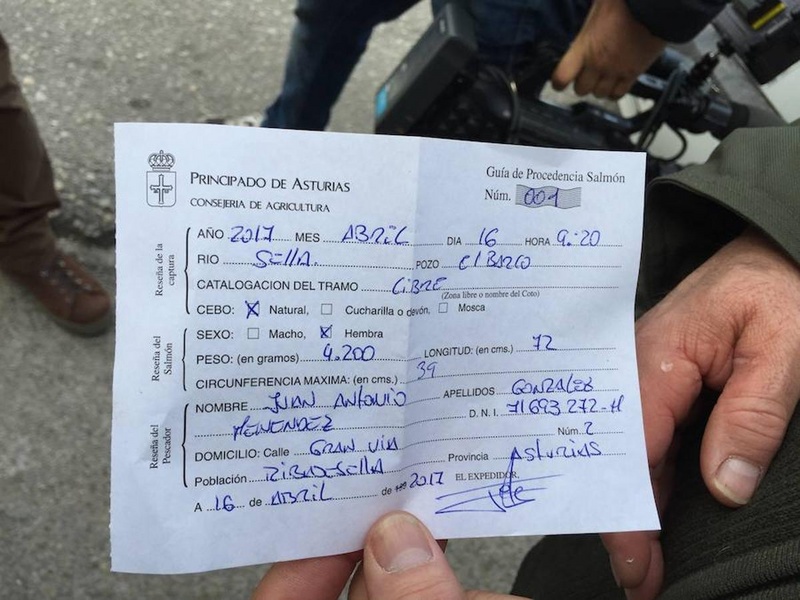 PRINCIPADO DE ASTURIAS
CONSEJERIA DE AGRICULTURA
Guía de Procedencia Salmón
Núm. 001
Reseña de la captura
AÑO 2017 MES ABRIL DIA 16 HORA 9:20
RIO SELLA POZO El BARCO
CATALOGACION DEL TRAMO LIBRE
(Zona libre o nombre del Coto)
CEBO: X Natural, Cucharilla o devón, Mosca
Reseña del Salmón
SEXO: Macho, X Hembra
PESO: (en gramos) 4.200 LONGITUD: (en cms.) 72
CIRCUNFERENCIA MAXIMA: (en cms.) 39
Reseña del Pescador
NOMBRE JUAN ANTONIO APELLIDOS GONZALEZ
MENENDEZ D. N. I. 71693272-H
DOMICILIO: Calle GRAN VIA Núm. 2
Población RIBADESELLA Provincia ASTURIAS
A 16 de ABRIL de 2017 EL EXPEDIDOR,